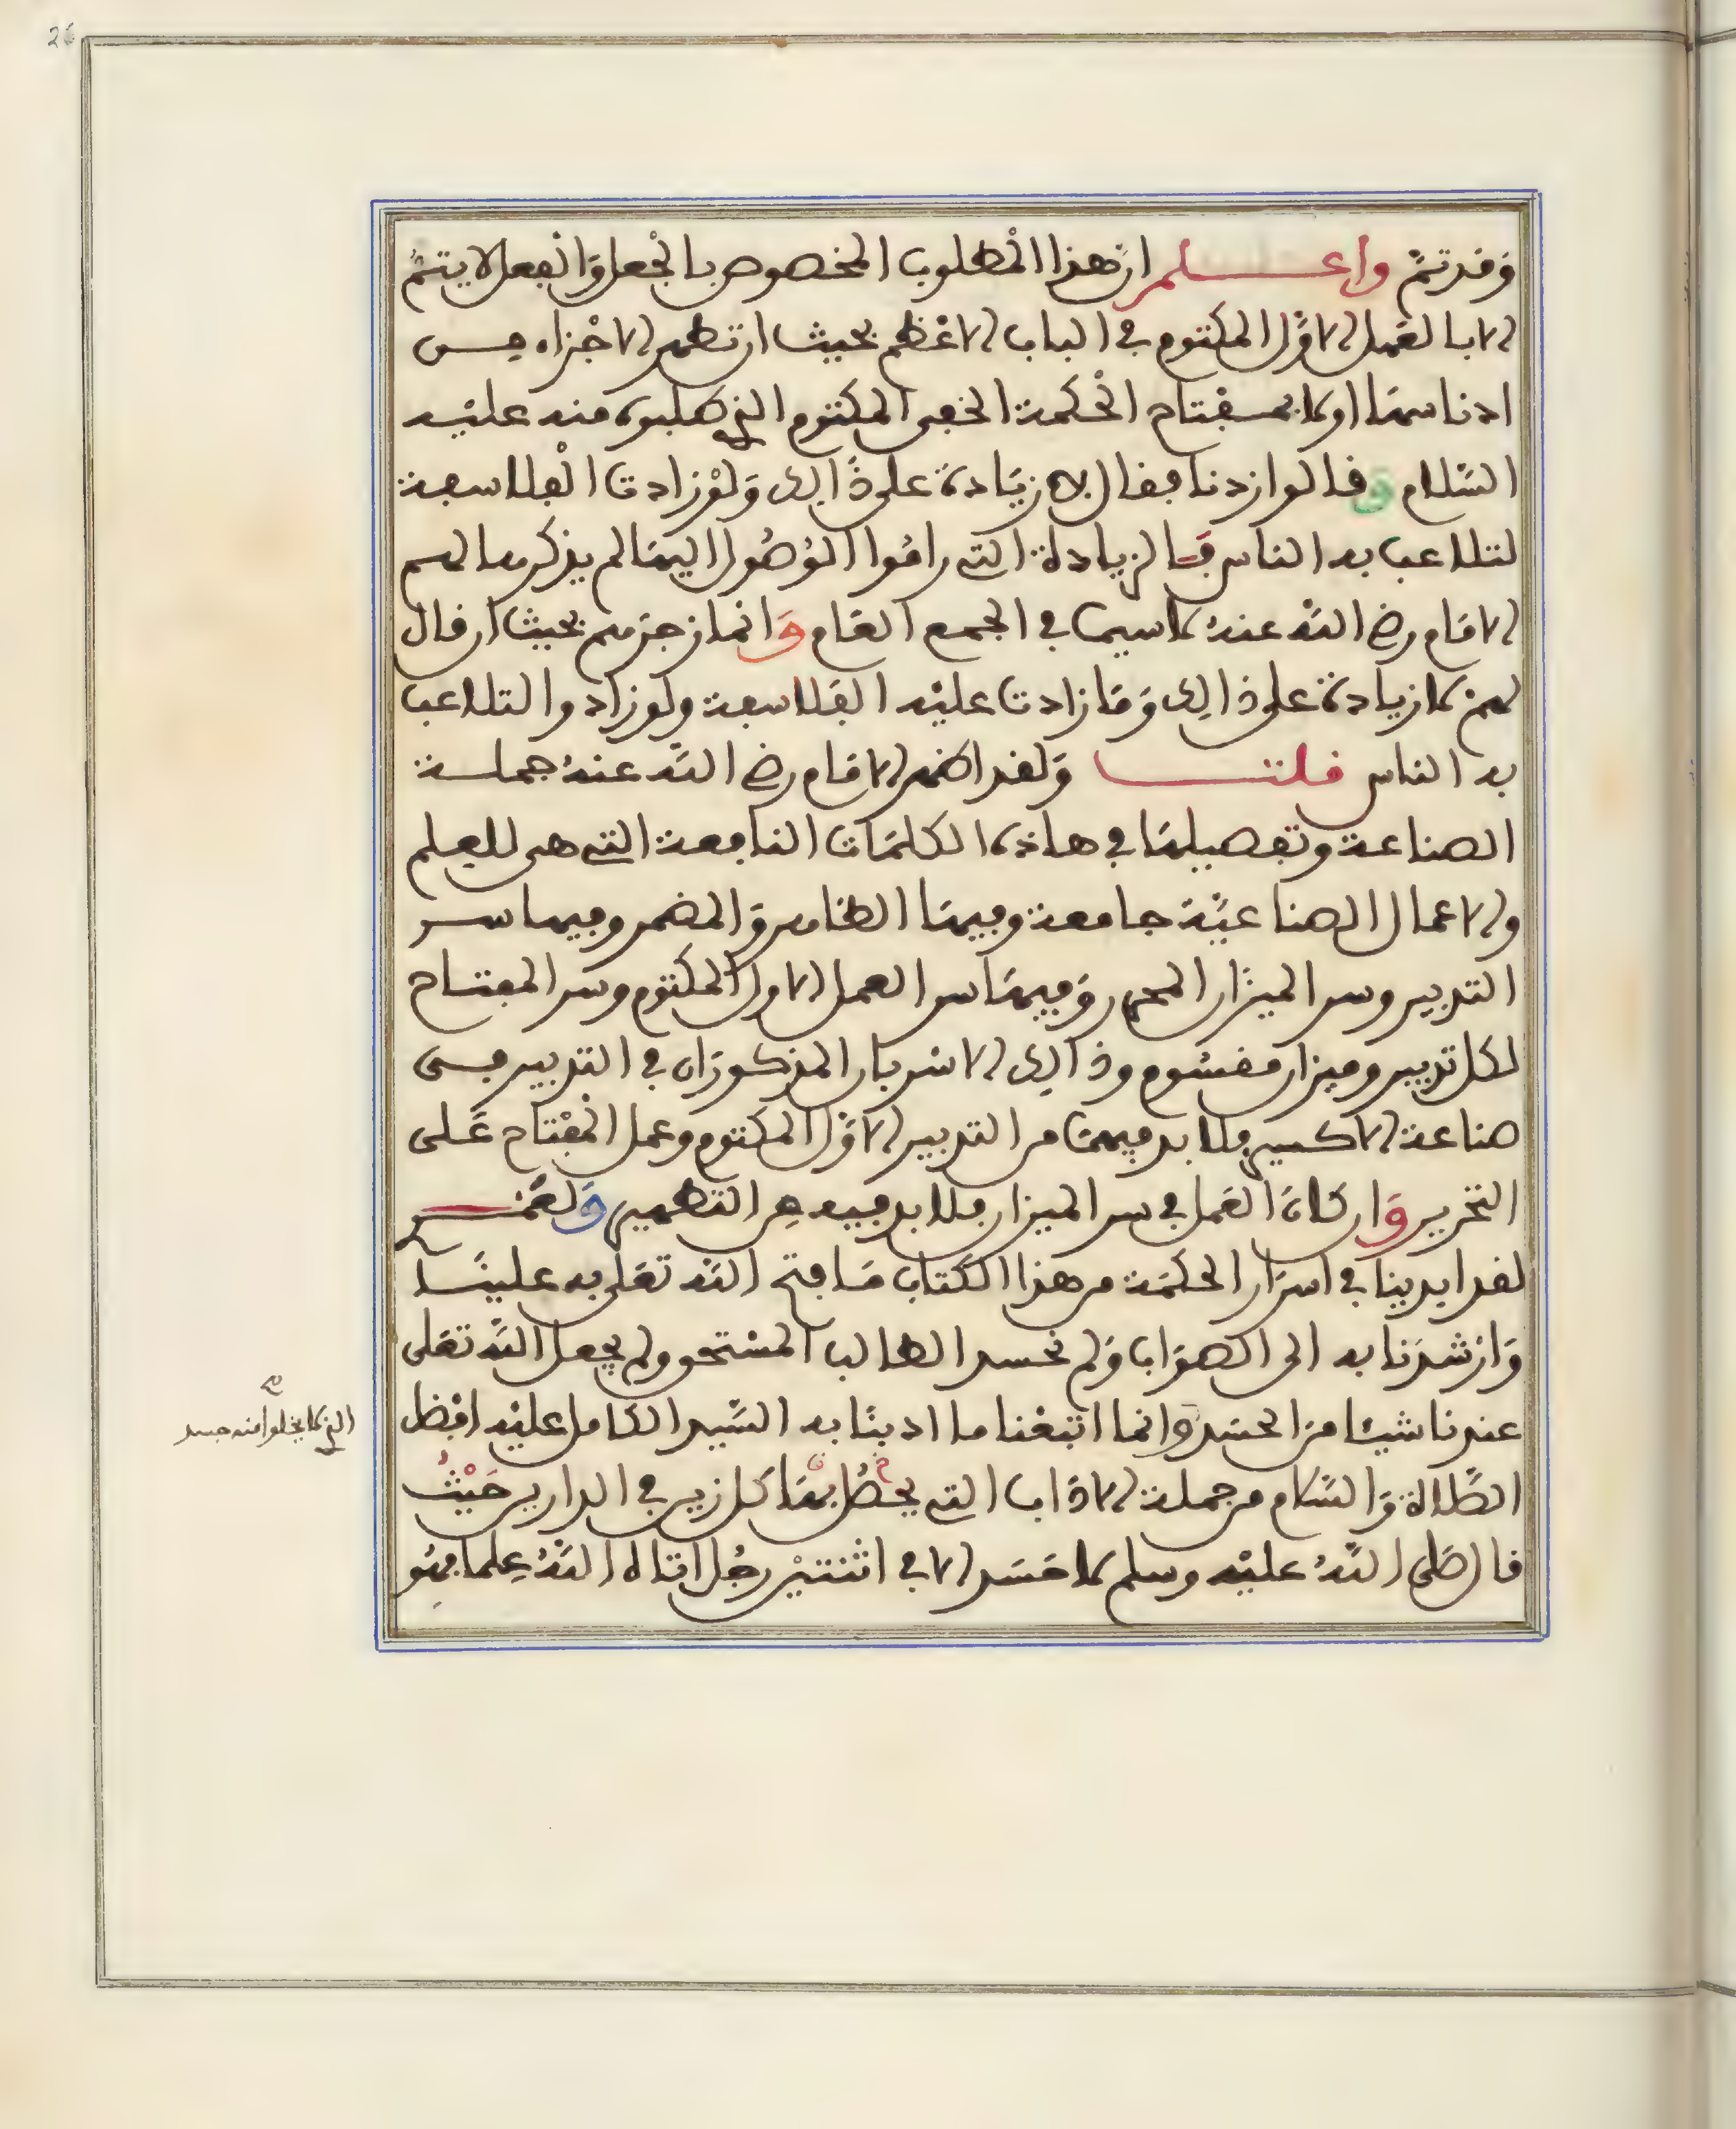 وقد تم واعلم ان هذا المطلوب المخصوص بالجعل والفعل لا يتم
الا بالعمل الاول المكتوم في الباب الاعظم بحيث ان تطهر الاجزاء من
ادناسها اولا بمفتاح الحكمة الخفي المكتوم الذي طلبوه منه عليه
السلام وقالوا زدنا فقال لا زيادة على ذالك ولو زادت الفلاسفة
لتلاعب به الناس فالزيادة التي راموا الوصول اليها لم يذكرها لهم
الامام رضي الله عنه لا سيما في الجمع العام وانما زجرهم بحيث ان قال
لهم لا زيادة على ذالك وما زادت عليه الفلاسفة ولو زادوا لتلاعب
به الناس قلت ولقد اظهر الامام رضي الله عنه جملة
الصناعة وتفصيلها في هاذه الكلمات النافعة التي هي للعلم
والاعمال الصناعية جامعة وفيها الظاهر والمضمر وفيها سر
التدبير وسر الميزان المحرر وفيها سر العمل الاول المكتوم وسر المفتاح
لكل تدبير وميزان مقسوم وذالك الاسرباز المذكوران في التدبير في
صناعة الاكسير فلا بد فيها من التدبير الاول المكتوم وعمل المفتاح على
التحرير وان كان العمل في سر الميزان فلا بد فيه من التطهير ولعمر
لقد ابدينا في اسرار الحكمة من هذا الكتاب ما فتح الله تعلى به علينا
وارشدنا به الى الصواب ولم نحسد الطالب المستحق ولم يجعل الله تعلى
عندنا شيئا من الحسد وانما اتبعنا ما ادبنا به السيد الكامل عليه افضل
الصلاة والسلام من جملة الاداب التي يحصل بها كل زين في الدارين حيث
قال صلى الله عليه وسلم لا حسد الا في اثنتين رجل اتاه الله علما فهو
الذي لا يخلوا منه جسد